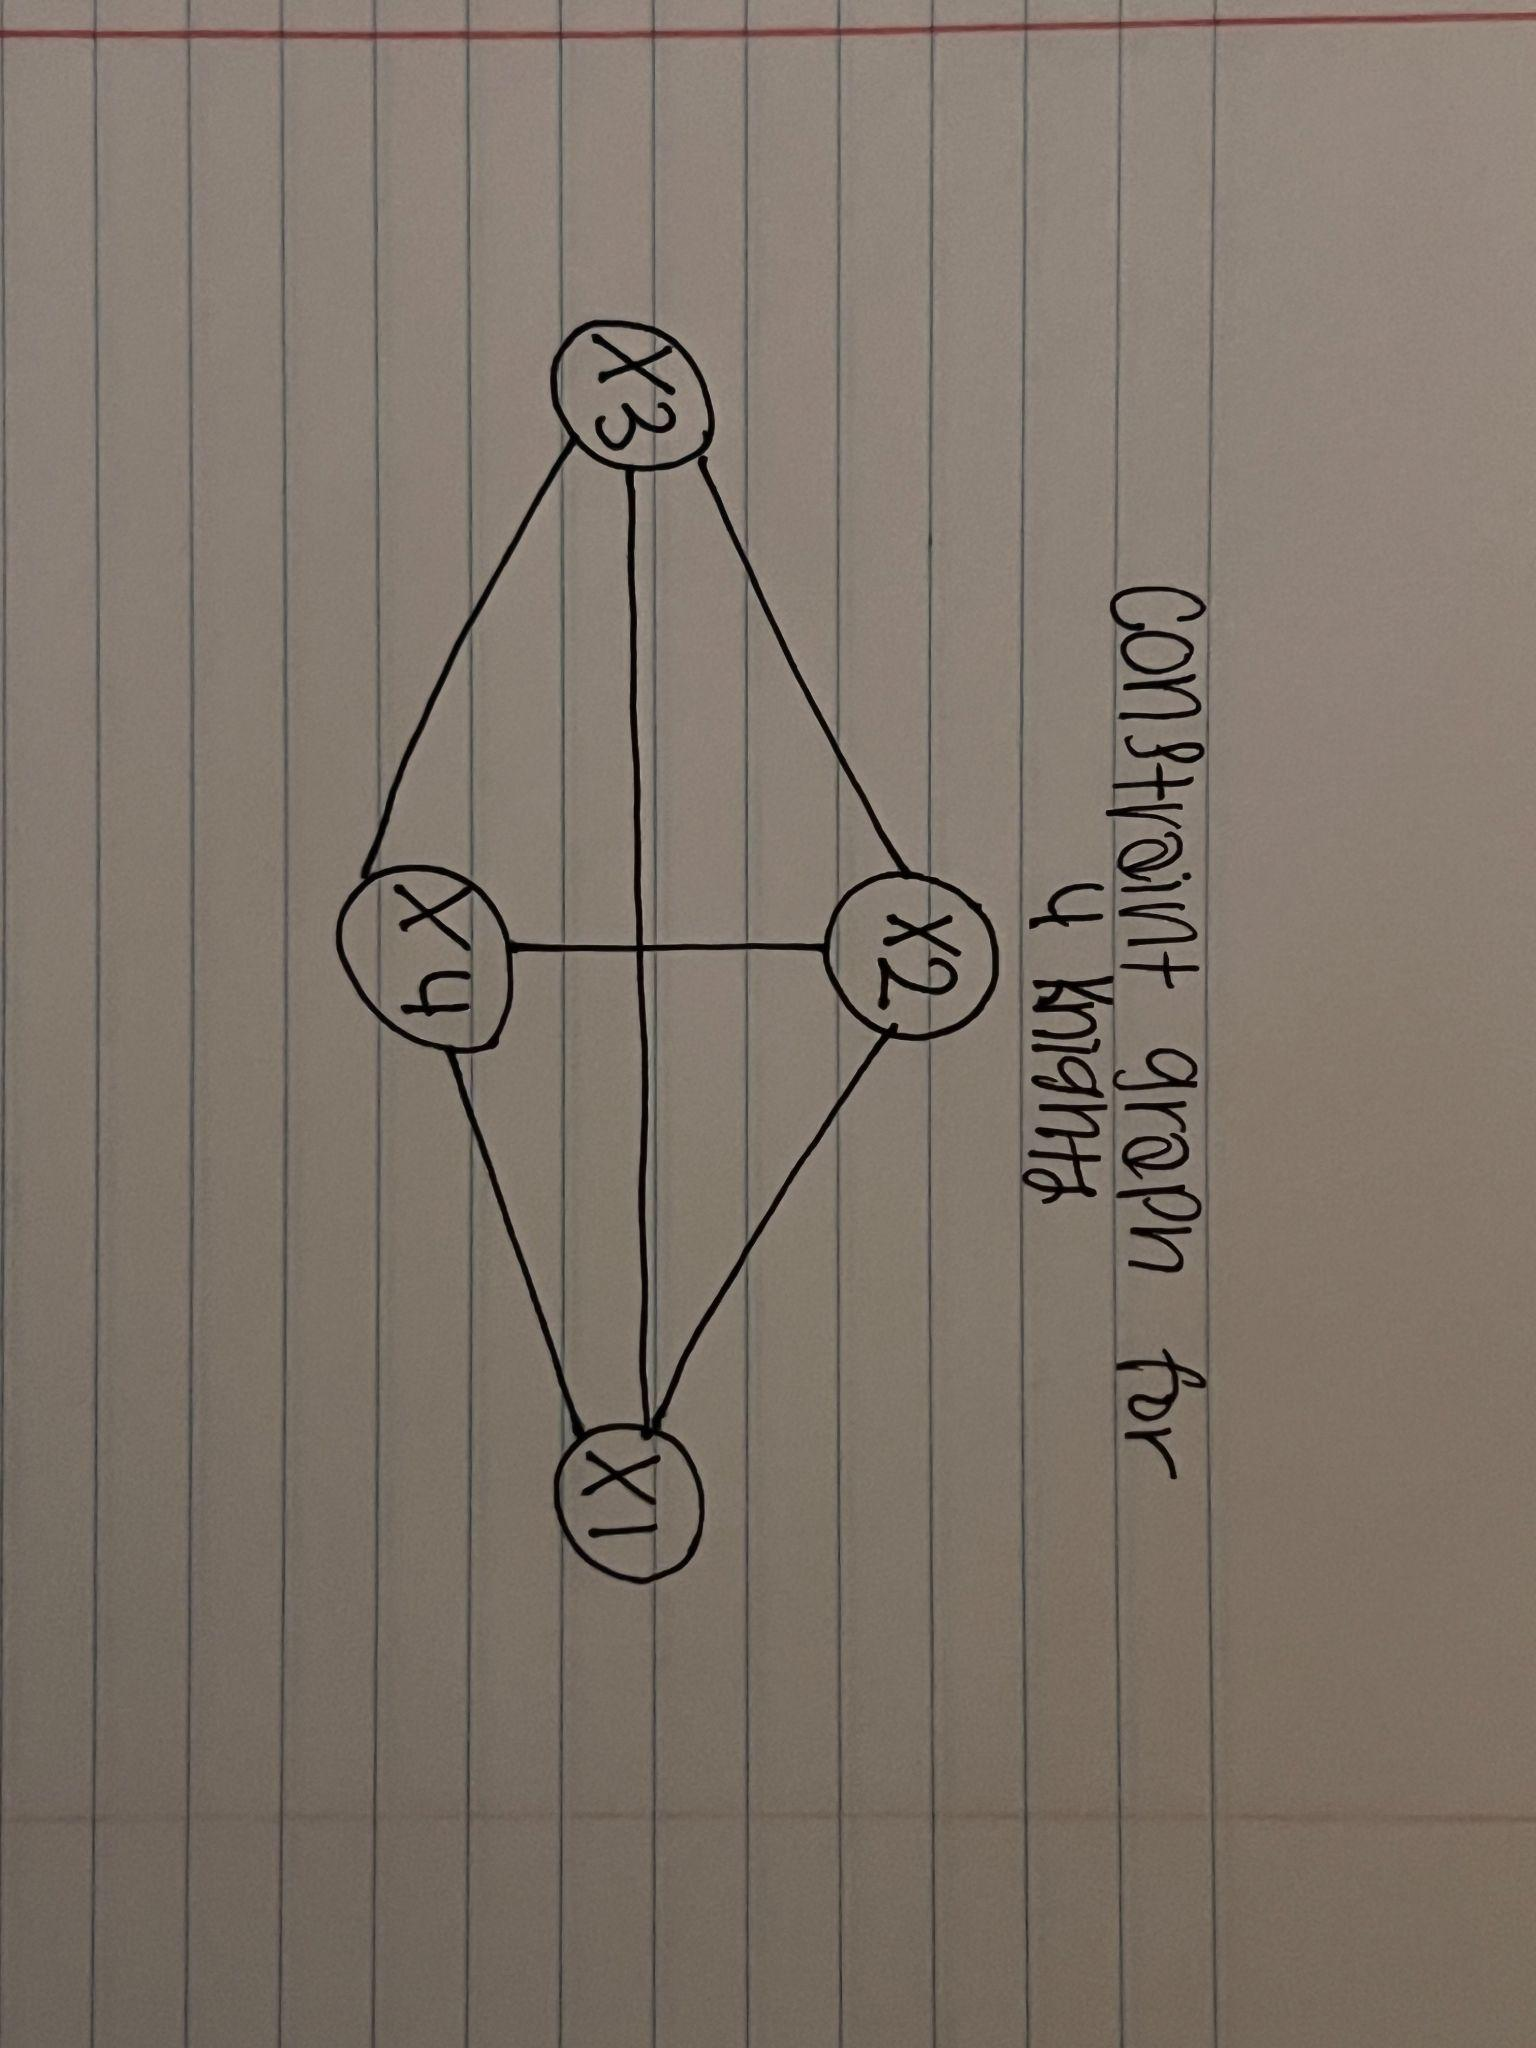 Constraint graph for
4 knights
X2
X3
X1
X4